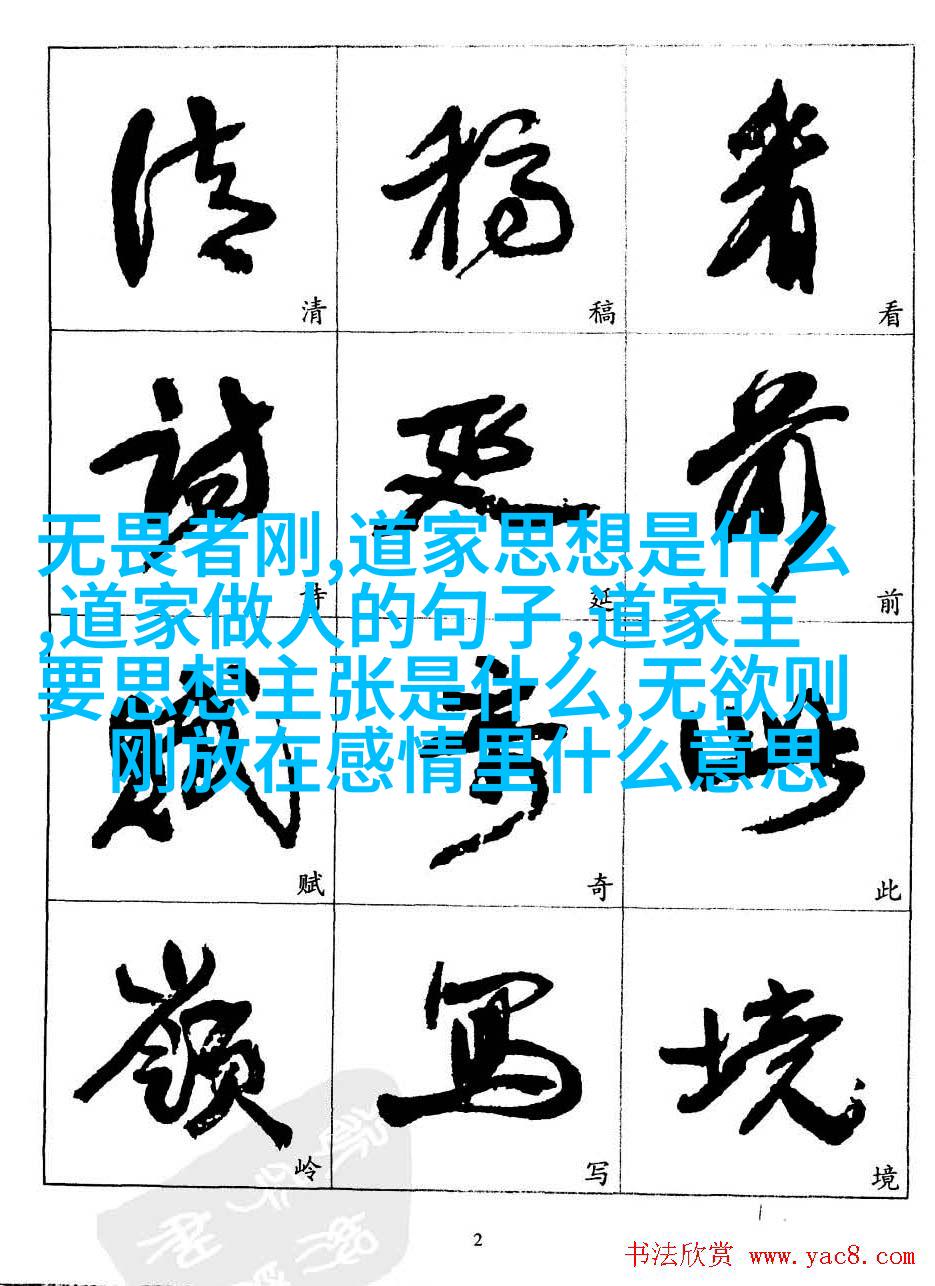 清 稿 看
诗 延 前
赋 奇 此
岭 写 境
无畏者刚,道家思想是什么
,道家做人的句子,道家主
要思想主张是什么,无欲则
刚放在感情里什么意思
2
书法欣赏 www.yac8.com